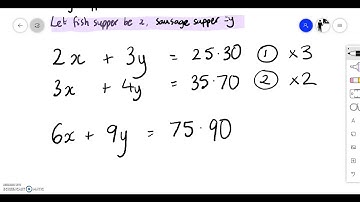 Let fish supper be x, sausage supper = y
2x + 3y = 25·30 ① ×3
3x + 4y = 35·70 ② ×2
6x + 9y = 75·90